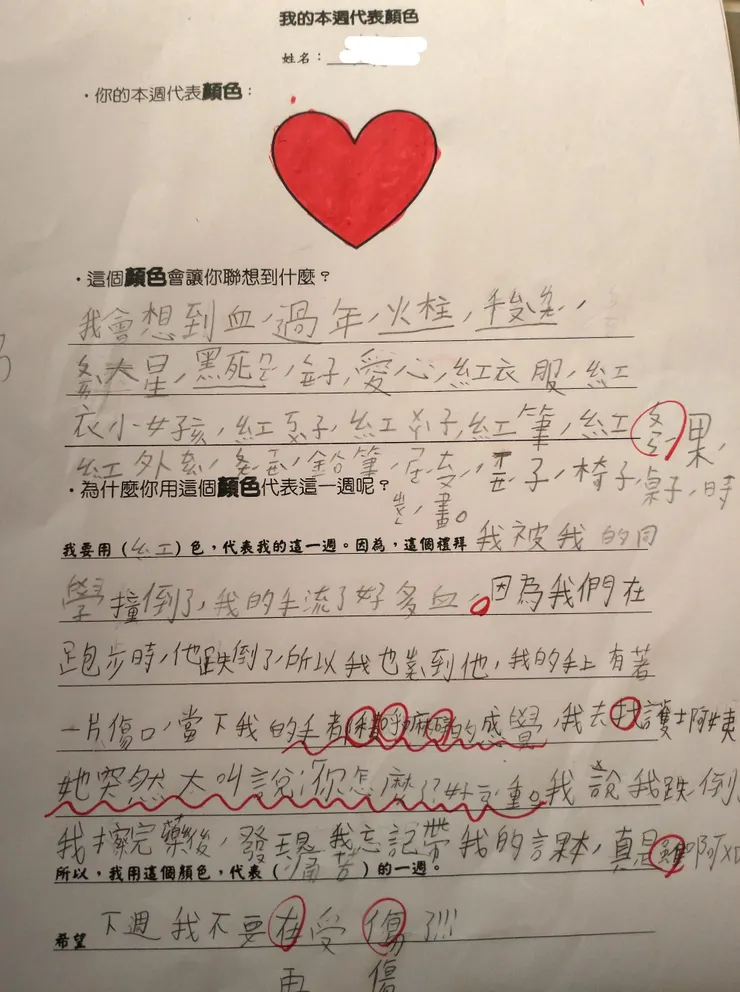 我的本週代表顏色
姓名：
・你的本週代表顏色：
・這個顏色會讓你聯想到什麼？
我會想到血，過年，火柱，
大星，黑死，愛心，紅衣服，紅
衣小女孩，紅子，紅子，紅筆，紅果，
紅外，鉛筆，子，椅子，桌子，時
，畫。
・為什麼你用這個顏色代表這一週呢？
我要用（紅）色，代表我的這一週。因為，這個禮拜我被我的同
學撞倒了，我的手流了好多血。因為我們在
跑步時，他跌倒了，所以我也到他，我的手上有著
一片傷口，當下我的手有的感覺，我去找護士阿姨
她突然大叫說：你怎麼了？好重。我說我跌倒
我擦完藥後，發現我忘記帶我的課本，真是啊
所以，我用這個顏色，代表（痛苦）的一週。
希望下週我不要在受傷了!!!
再 傷